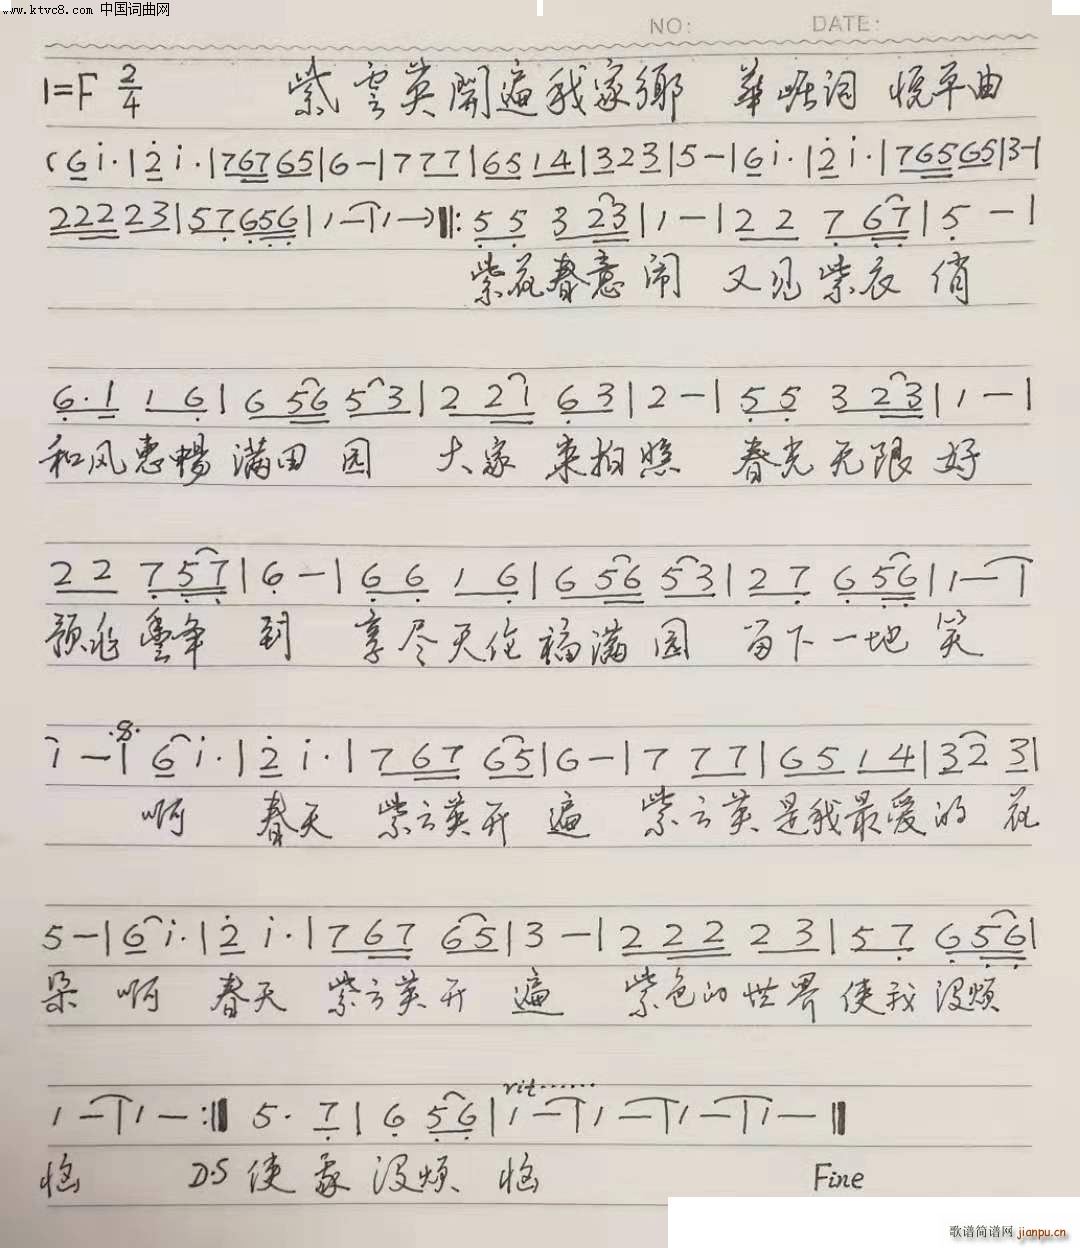 www.ktvc8.com 中国词曲网
NO: DATE:
1=F 2/4 紫雲英開遍我家鄉 華崌词 悦平曲
( 6 i· | 2 i· | 7 67 65 | 6 - | 7 7 7 | 65 14 | 3 2 3 | 5 - | 6 i· | 2 i· | 7 65 65 | 3 - |
2 22 23 | 57 656 | 1 - | 1 - ) ‖: 5 5 3 23 | 1 - | 2 2 7 67 | 5 - |
紫花春意闹 又见紫衣俏
6· 1 1 6 | 6 56 53 | 2 21 63 | 2 - | 5 5 3 23 | 1 - |
和风惠暢满田园 大家来拍照 春光无限好
2 2 7 57 | 6 - | 6 6 1 6 | 6 56 53 | 27 656 | 1 -
预兆豐年到 享尽天伦福满园 留下一地笑
1 - | 6 i· | 2 i· | 7 67 65 | 6 - | 7 77 | 65 14 | 32 3 |
啊 春天 紫云英开遍 紫云英是我最爱的花
5 - | 6 i· | 2 i· | 7 67 65 | 3 - | 2 22 23 | 57 656 |
朵 啊 春天 紫云英开遍 紫色的世界使我没烦
rit······
1 - | 1 - :‖ 5· 7 | 6 56 | 1 - | 1 - | 1 - | 1 - ‖
恼 D.S 使我没烦恼 Fine
歌谱简谱网 jianpu.cn